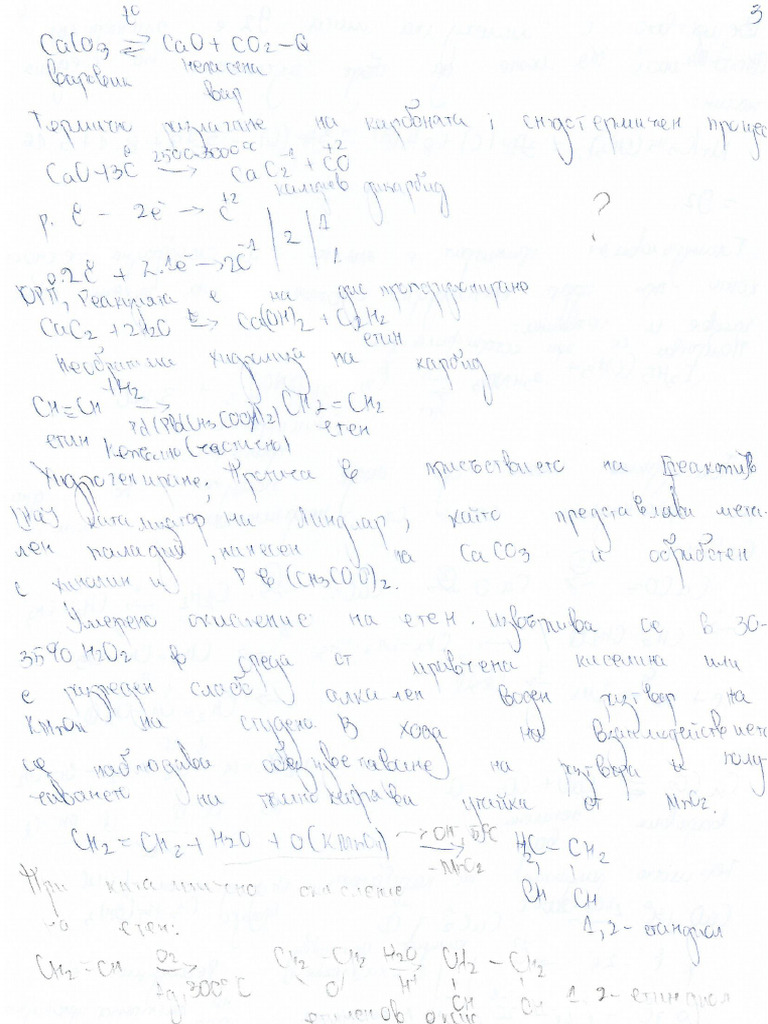 3
t°
CaCO3 ⇄ CaO + CO2 - Q
варовик негасена
вар
Термично разлагане на карбоната; ендотермичен процес
CaO + 3C 2500-3000°C → CaC2 + CO
калциев дикарбид
р. C - 2e → C+2 | 2 | 1
?
2C + 2.1e → 2C-1 1
ОРП, реакцията е на диспропорциониране
CaC2 + 2H2O → Ca(OH)2 + C2H2
етин
Необратима хидролиза на карбид
+H2
CH≡CH → CH2=CH2
Pd(Pb(CH3COO)2)
етин (частично) етен
Хидрогениране. Протича в присъствието на
катализатор на Линдлар, който представлява мета-
лен паладий, нанесен на CaCO3 и обработен
с хинолин и Pb(CH3COO)2.
Умерено окисление на етен. Извършва се в 30-
35% H2O2 в среда от мравчена киселина или
с разреден слабо алкален воден разтвор на
KMnO4 на студено. В хода на взаимодействието
се наблюдава обезцветяване на разтвора и полу-
чаването на тъмнокафява утайка от MnO2.
CH2=CH2 + H2O + O(KMnO4) → H2C - CH2
-MnO2
OH OH
1,2-етандиол
При каталитично окисление
на етен:
CH2=CH O2 → CH2-CH2 H2O → CH2 - CH2
Ag, 300°C O H+ OH OH 1,2-етандиол
етиленов оксид